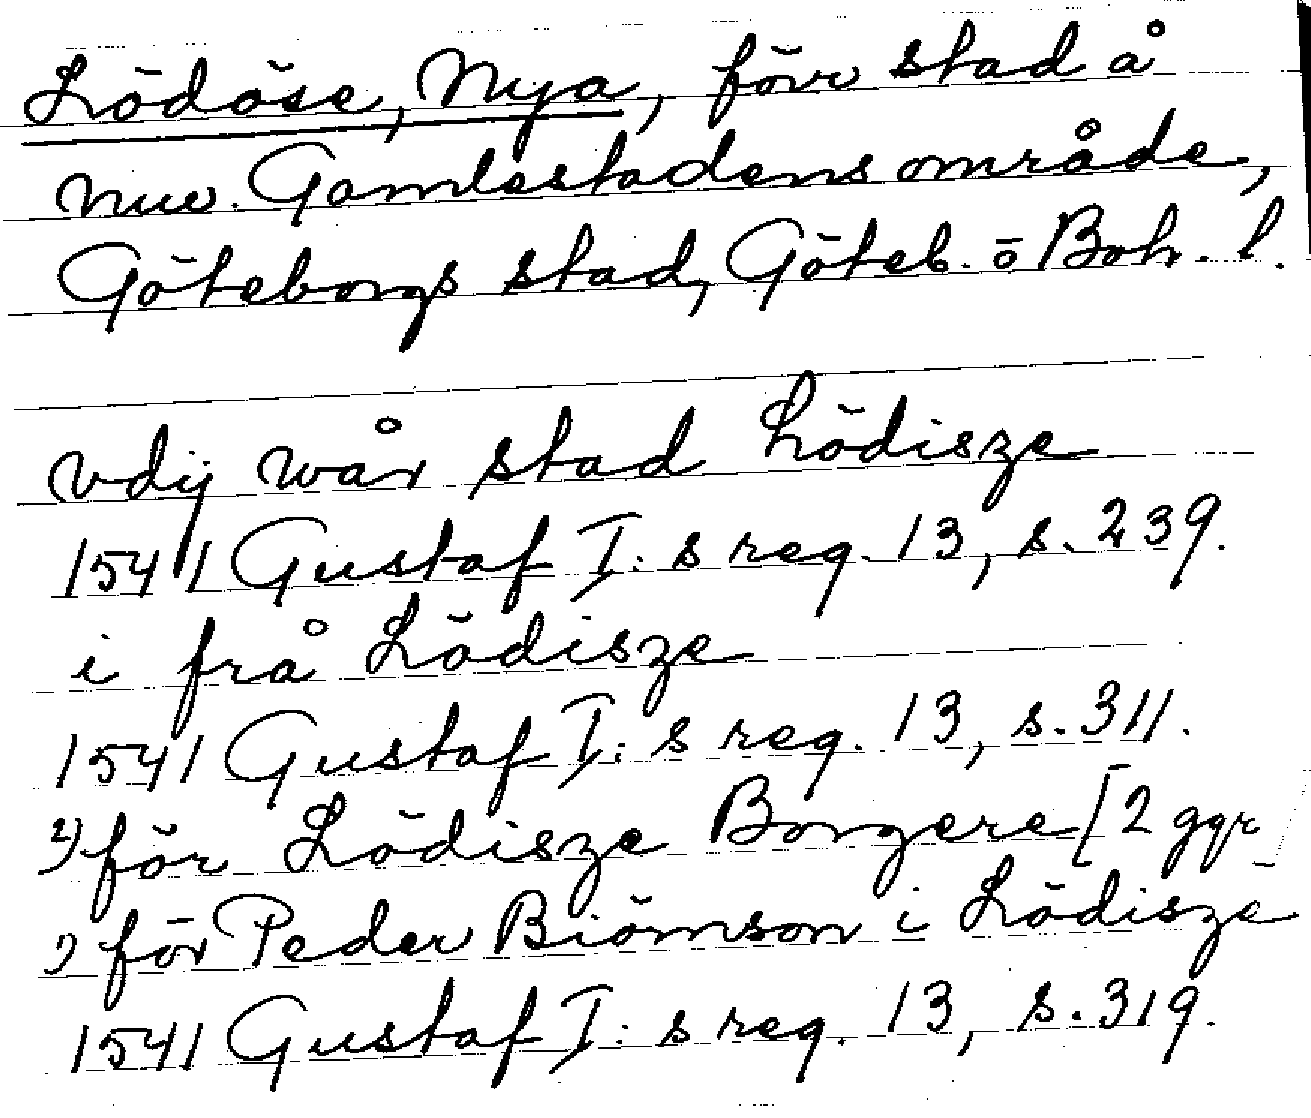 Lödöse, Nya, förr stad å
nuv. Gamlestadens område,
Göteborgs stad, Göteb. o Boh. l.
vdij wår stad Lödisze
1541 Gustaf I:s reg. 13, s. 239.
i frå Lödisze
1541 Gustaf I:s reg. 13, s. 311.
2) för Lödisze Borgere [2 ggr]
1) för Peder Biörnson i Lödisze
1541 Gustaf I:s reg. 13, s. 319.